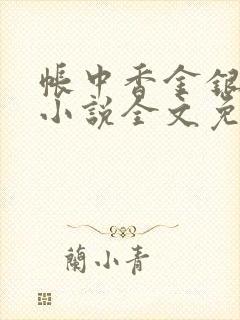 帳中香金銀
小說全文免
蘭小青